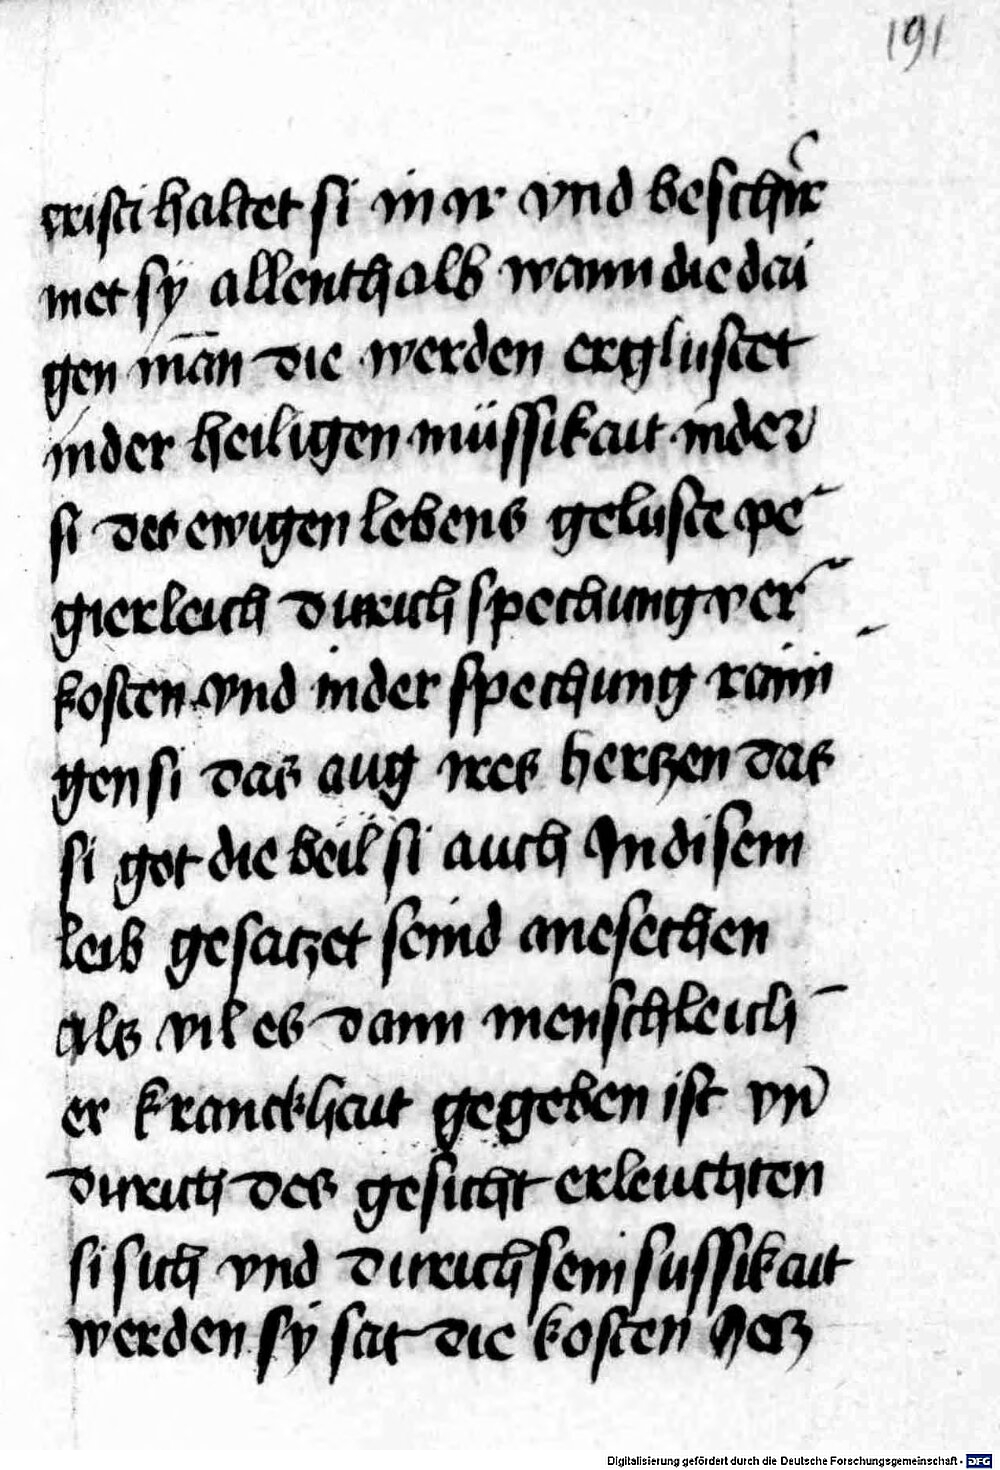 191
cristi haltet si in ir vnd beschir
met sÿ allenthalb wann die dai
gen man die werden erglustet
in der heiligen müssikait in der
si des ewigen lebens geluste pe
gierleich durich spechung ver
kosten vnd in der spechung raini
gen si das aug ires hertzen das
si got die beil si auch In disem
leib gesatzet seind anesechen
als vil es dann menschleich
er kranckhait gegeben ist vn̄
durich des gesicht erleuchten
si sich vnd durich sein sussikait
werden sÿ sat die kosten
Digitalisierung gefördert durch die Deutsche Forschungsgemeinschaft - DFG